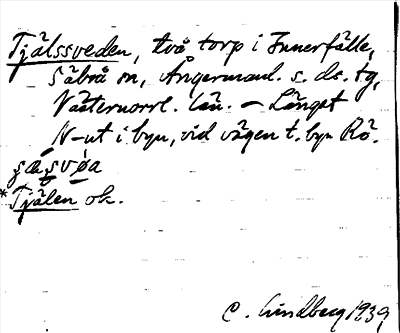 Tjälssveden, två torp i Innerfälle,
Säbrå sn, Ångermanl. s. ds. tg,
Västernorrl. län. – Längst
N-ut i byn, vid vägen t. byn Rö.
svøa
*Tjälen ok.
C. Lindberg 1939